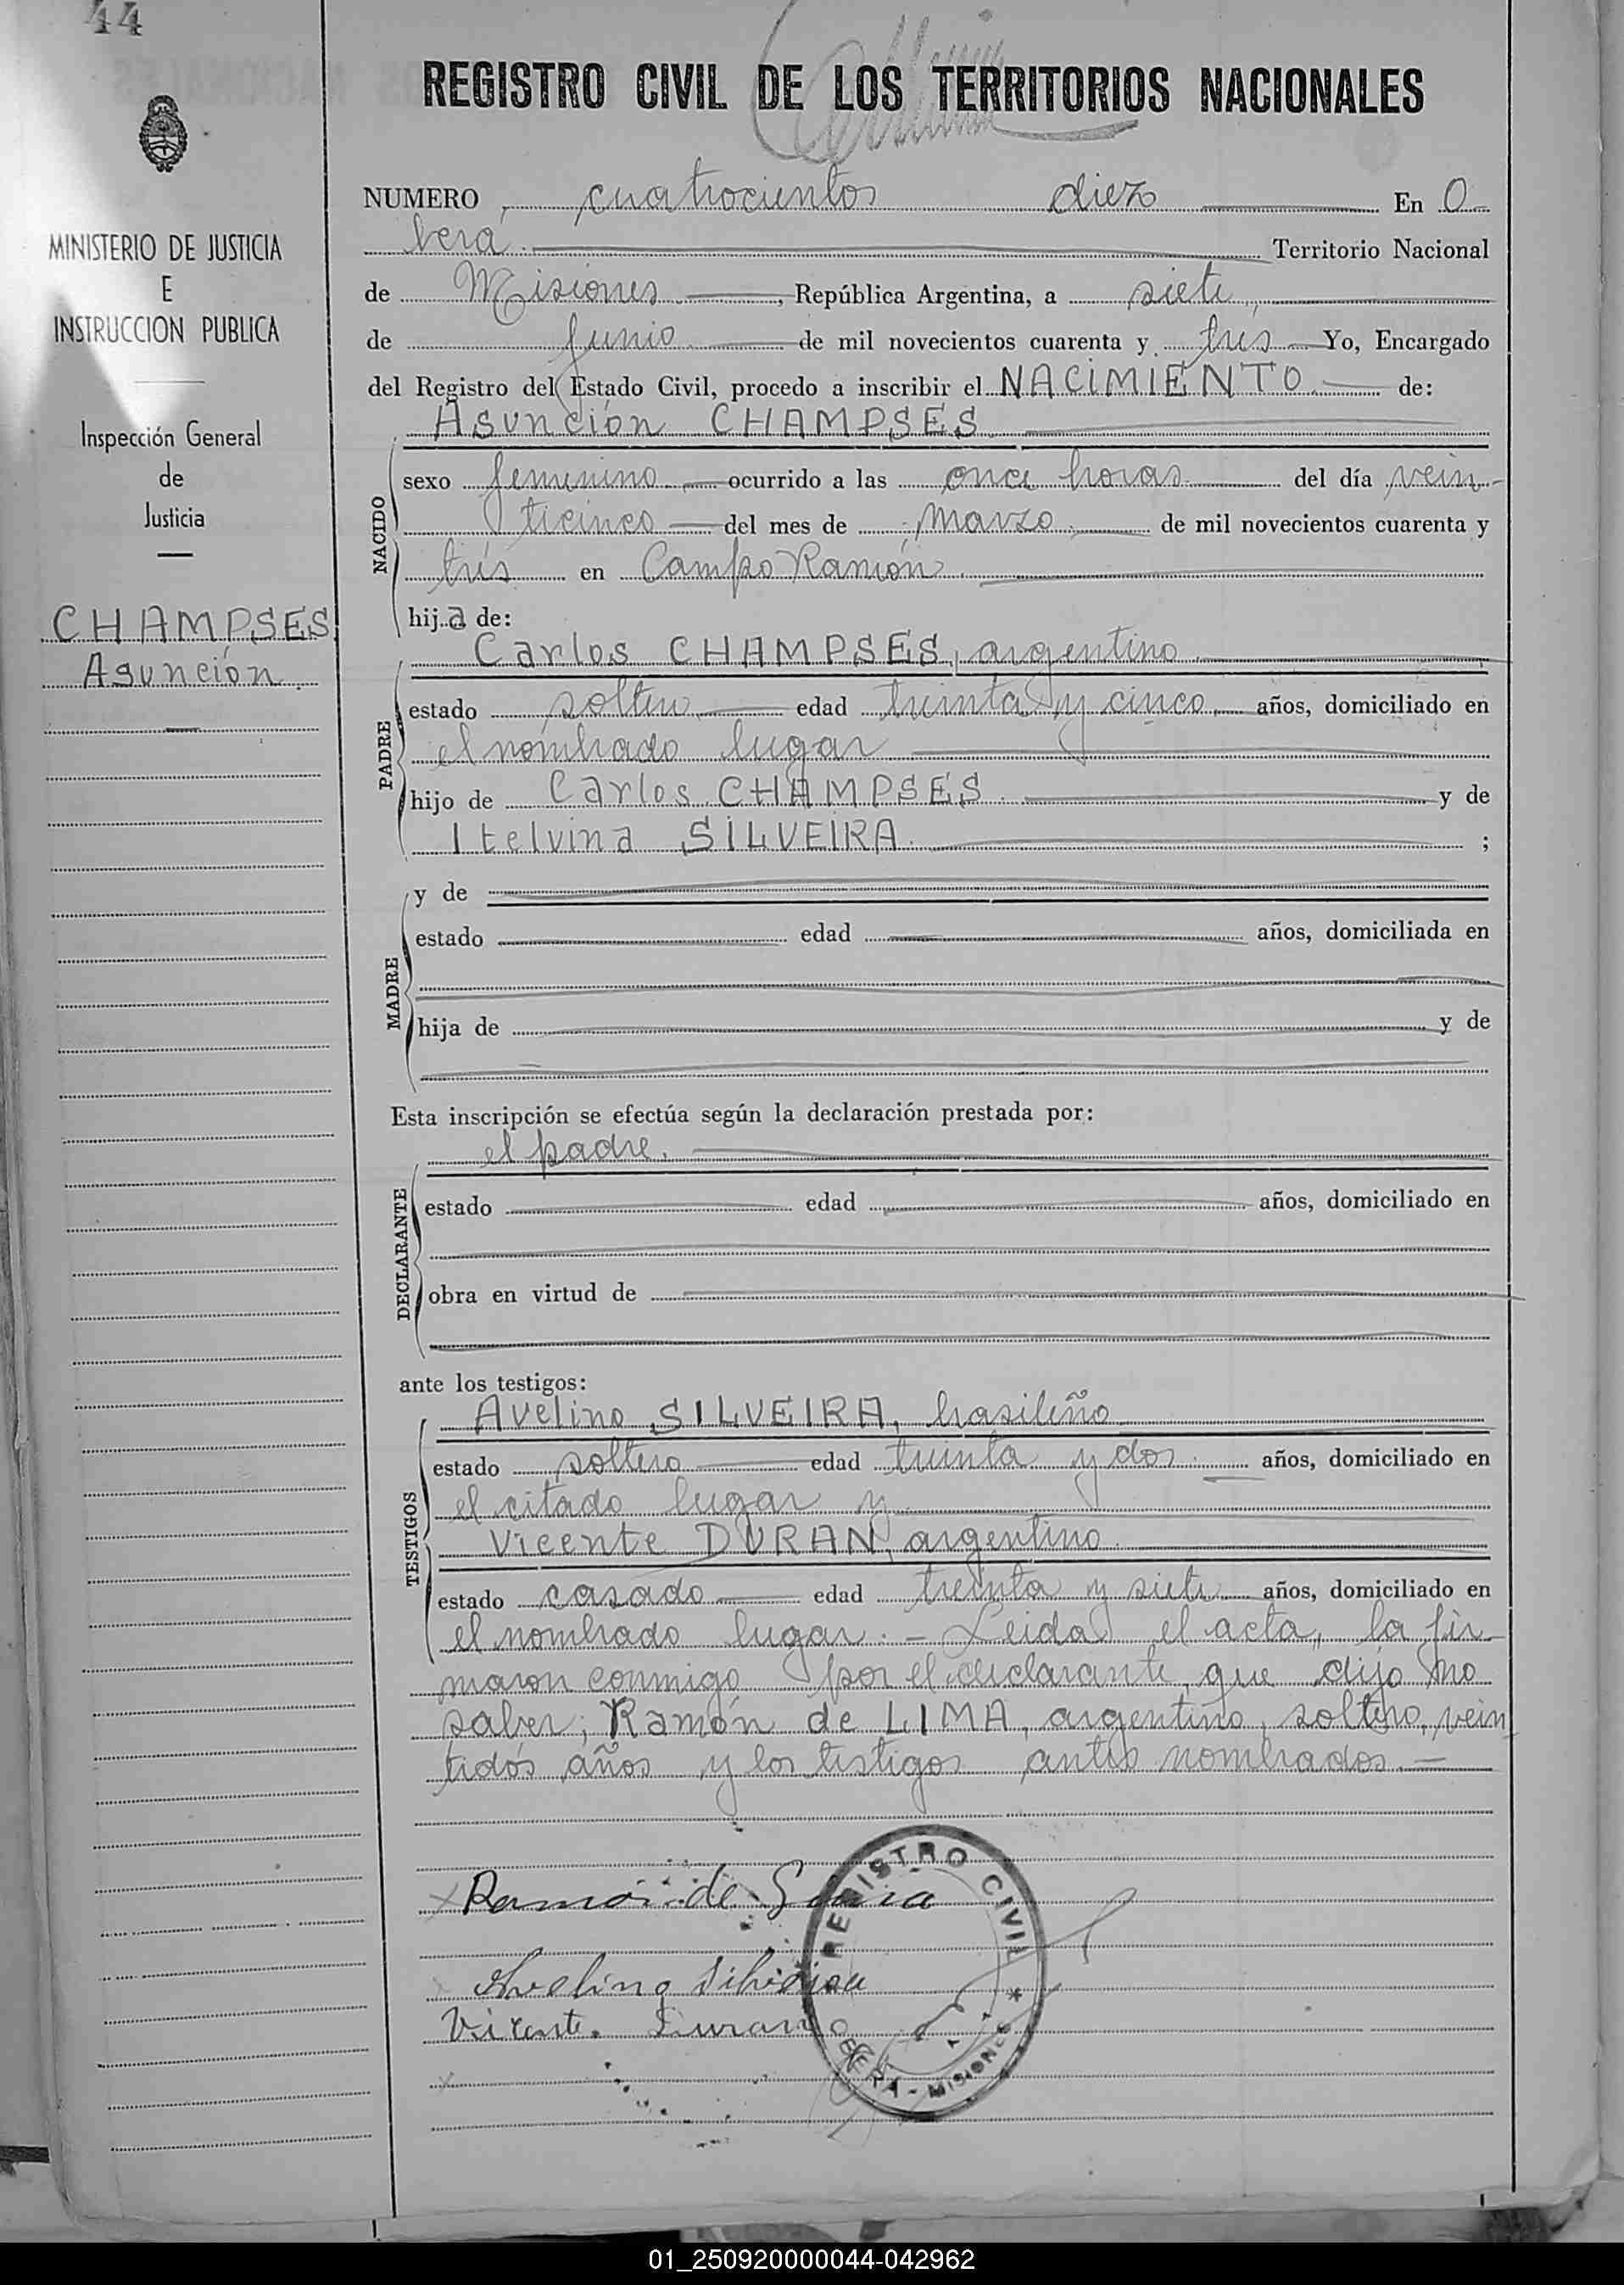 44
REGISTRO CIVIL DE LOS TERRITORIOS NACIONALES
MINISTERIO DE JUSTICIA
E
INSTRUCCION PUBLICA
Inspección General
de
Justicia
CHAMPSES
Asunción
NUMERO cuatrocientos diez En O
bera Territorio Nacional
de Misiones, República Argentina, a siete
de Junio de mil novecientos cuarenta y tres Yo, Encargado
del Registro del Estado Civil, procedo a inscribir el NACIMIENTO de:
Asunción CHAMPSES
NACIDO
sexo femenino ocurrido a las once horas del día vein-
ticinco del mes de marzo de mil novecientos cuarenta y
trés en Campo Ramón
hija de:
PADRE
Carlos CHAMPSES, argentino
estado soltero edad treinta y cinco años, domiciliado en
el nombrado lugar
hijo de Carlos CHAMPSES y de
Itelvina SILVEIRA. ;
MADRE
y de
estado edad años, domiciliada en
hija de y de
Esta inscripción se efectúa según la declaración prestada por:
el padre.
DECLARANTE
estado edad años, domiciliado en
obra en virtud de
ante los testigos:
TESTIGOS
Avelino SILVEIRA, brasileño
estado soltero edad treinta y dos años, domiciliado en
el citado lugar y
Vicente DURAN, argentino.
estado casado edad treinta y siete años, domiciliado en
el nombrado lugar. - Leida el acta, la fir-
maron conmigo por el declarante que dijo no
saber, Ramón de LIMA, argentino, soltero, vein
tidós años y los testigos antes nombrados. -
Ramon de
Avelino
Vicente Duran
REGISTRO CIVIL
OBERA - MISIONES
01_250920000044-042962